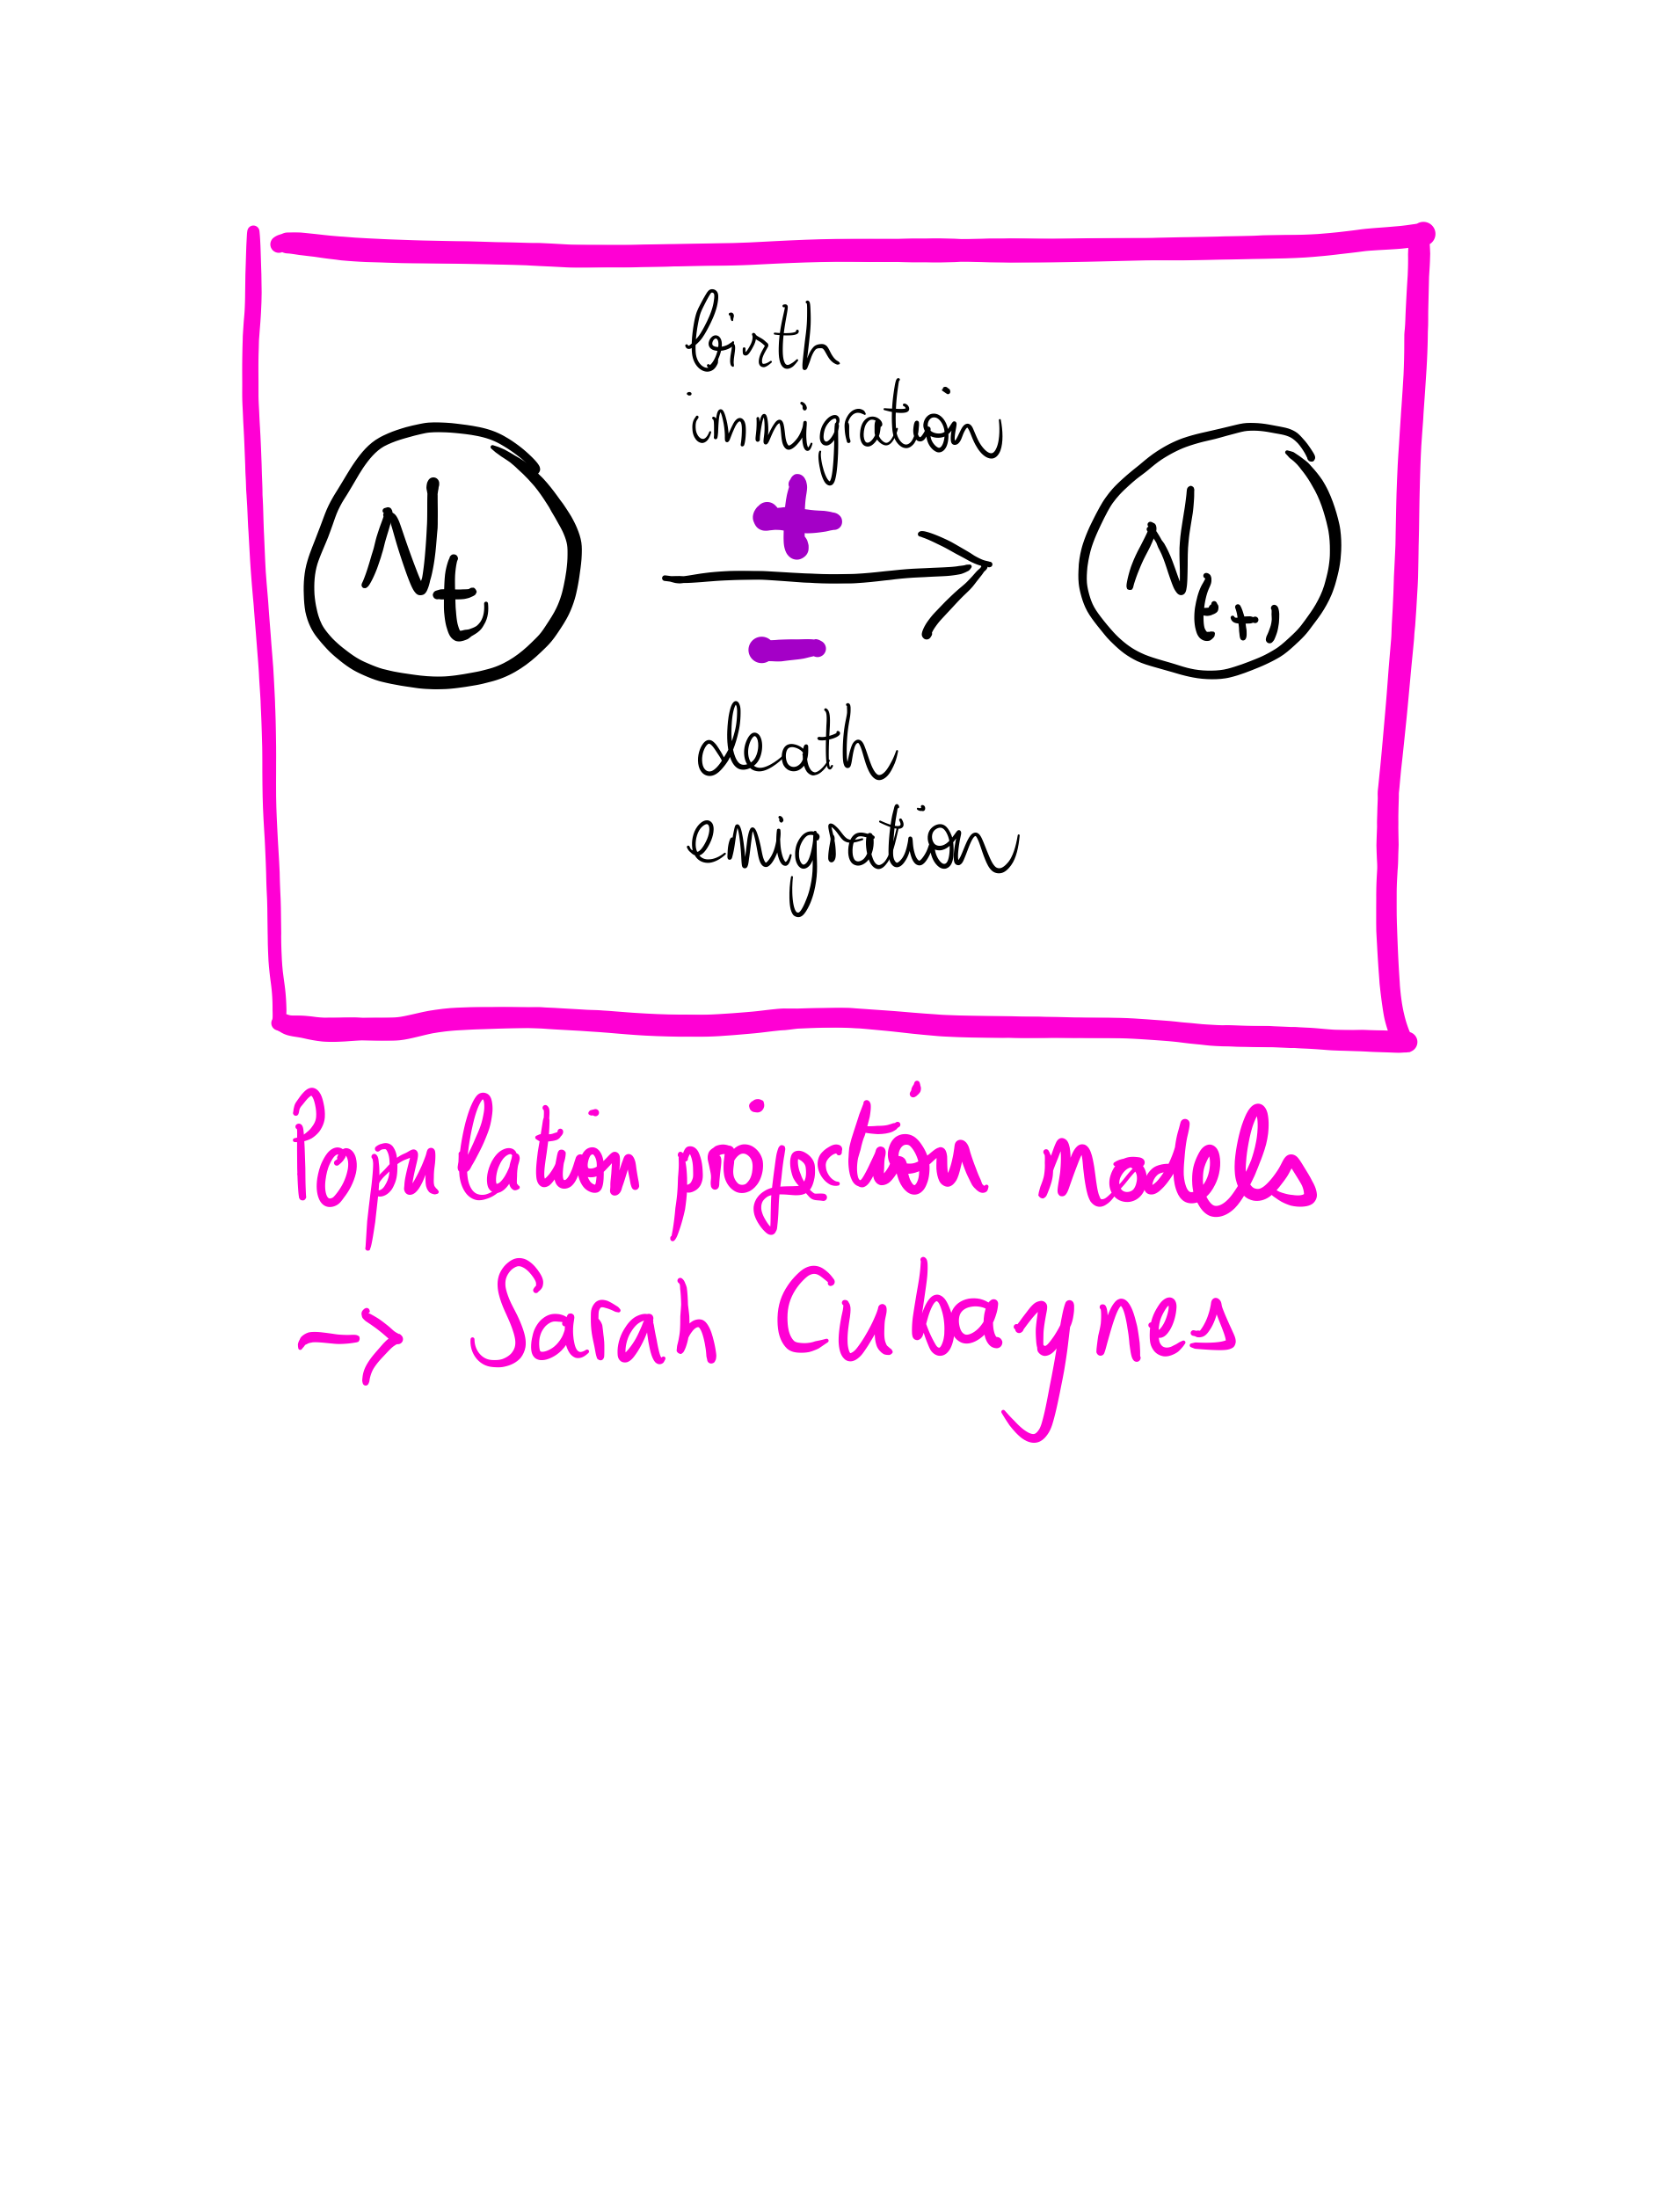 birth
immigration
+
N_t
N_t+1
-
death
emigration
Population projection models
→ Sarah Cubaynes